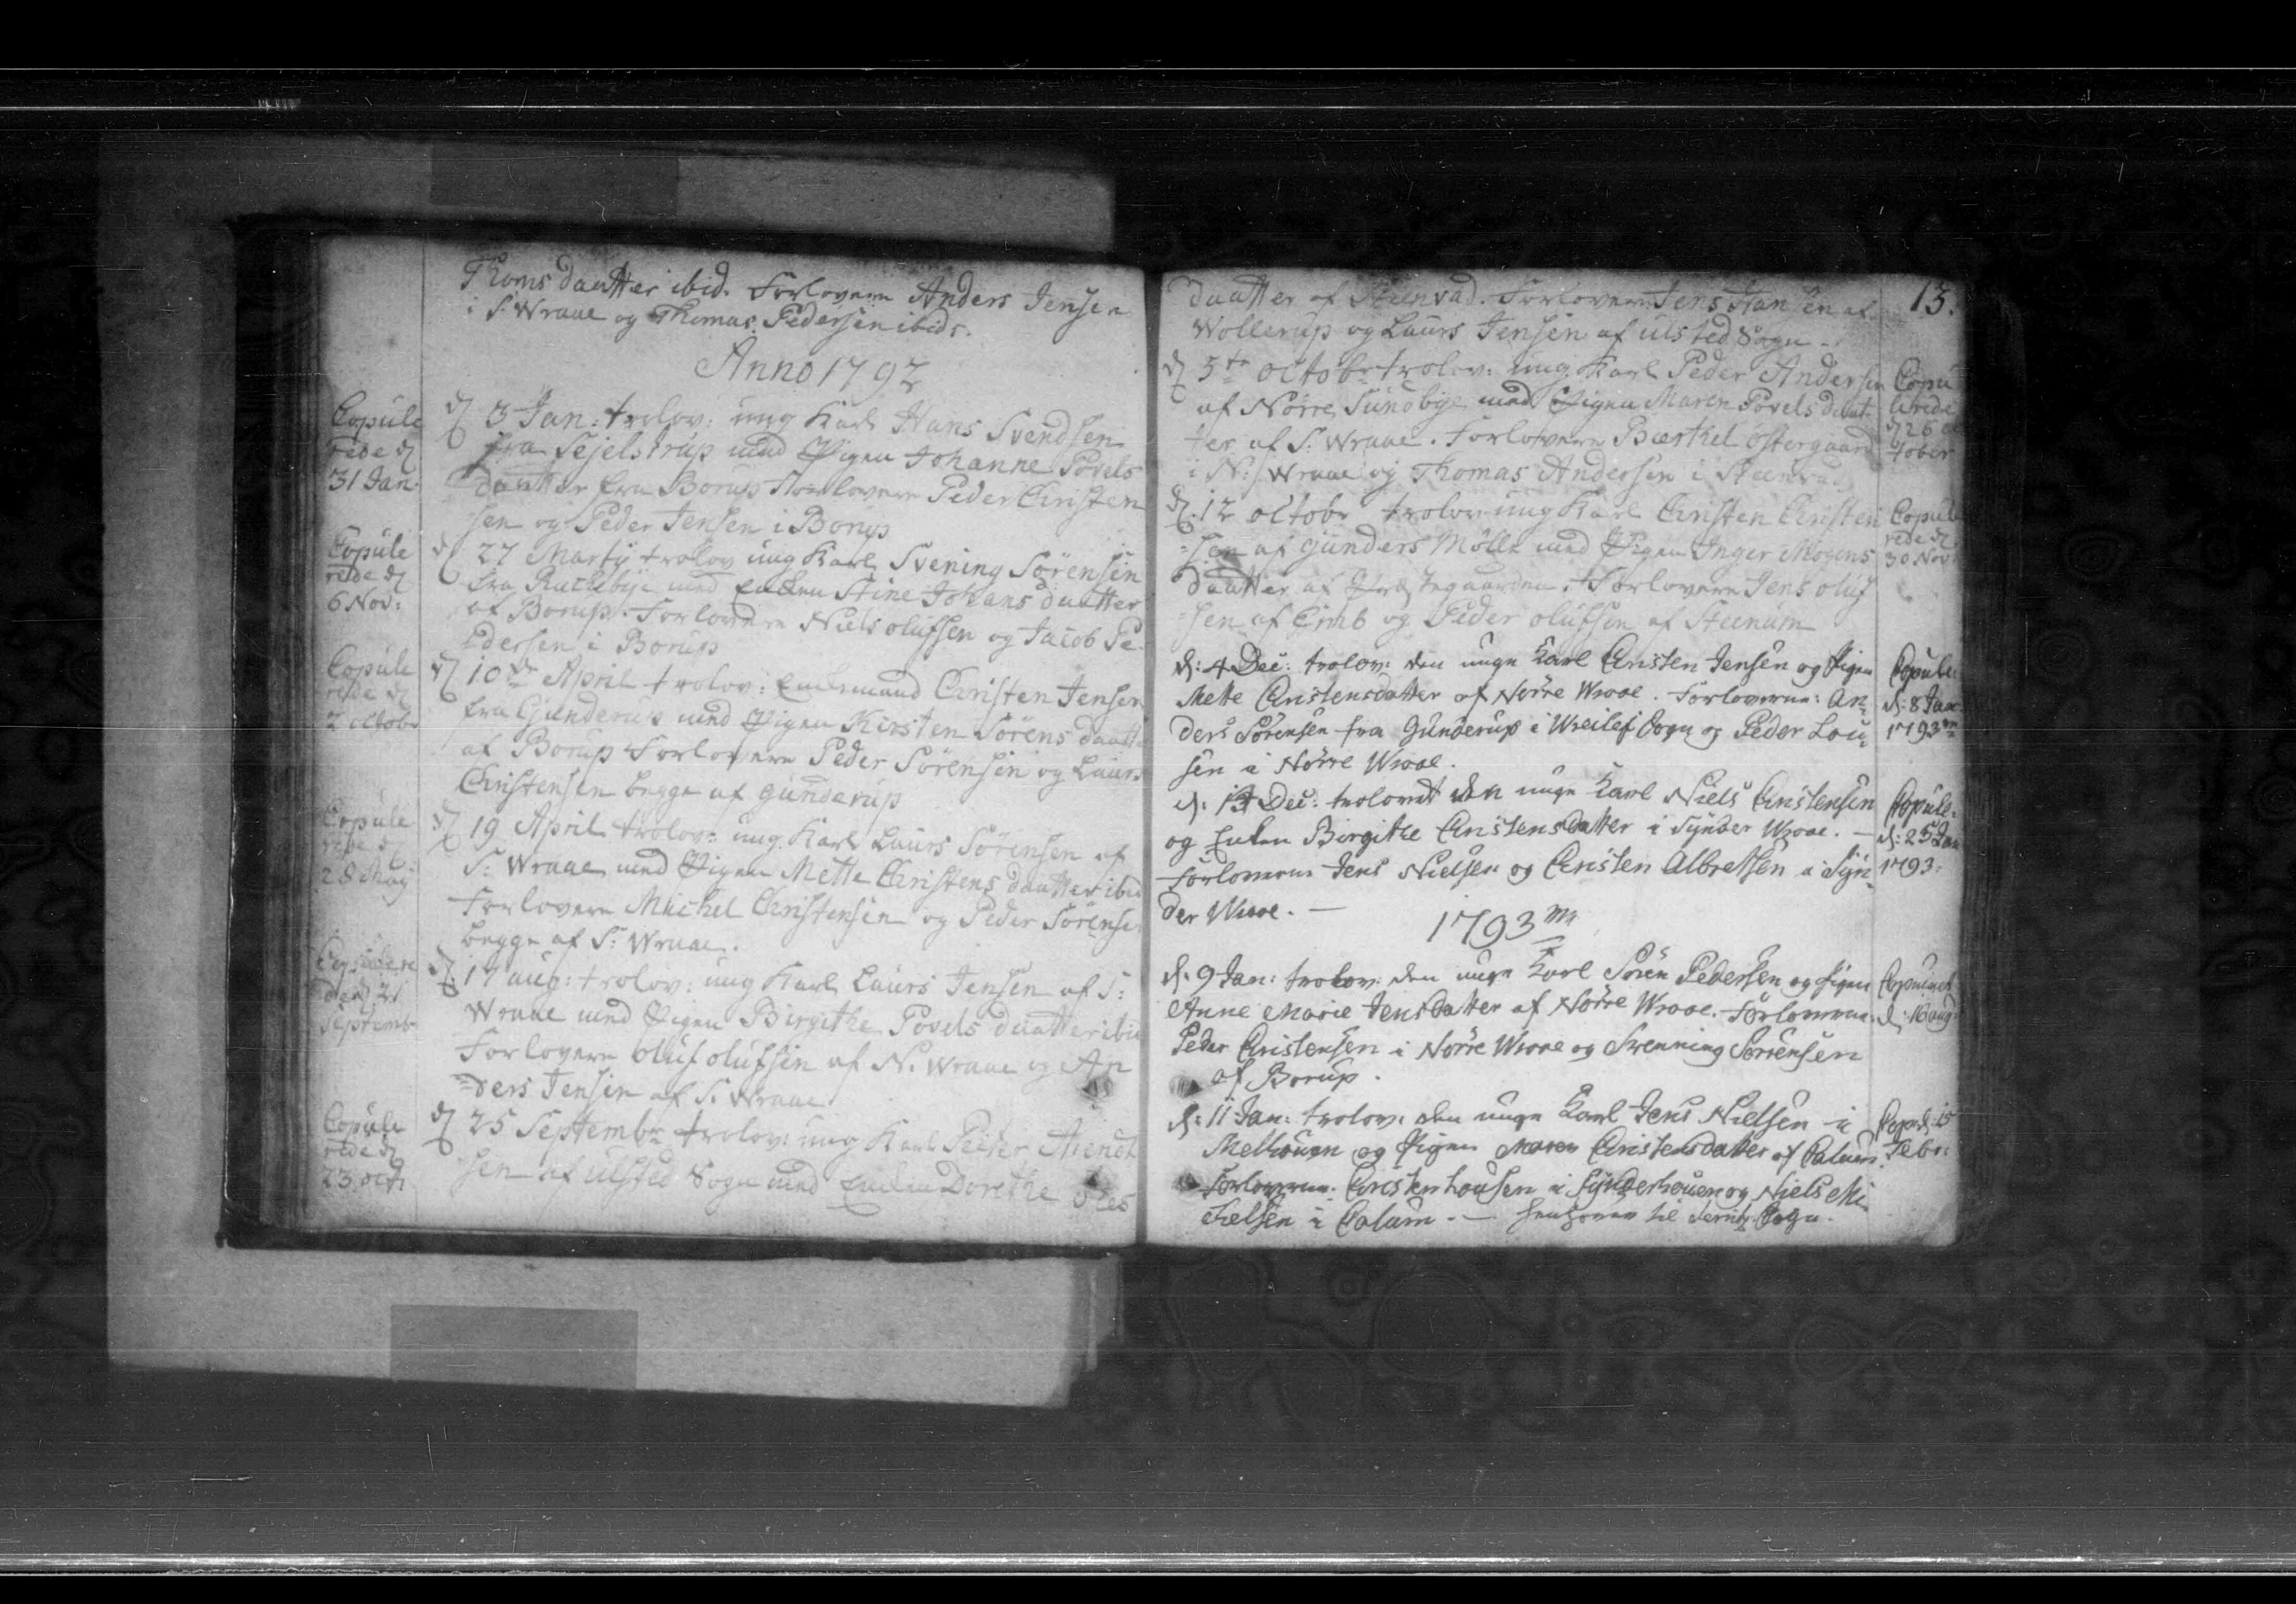 Thoms daatter ibid. Forlovere Anders Jensen
i S. Wraae og Thomas Pedersen ibid.
Anno 1792
Copule
rede d
31 Jan.
d 3 Jan: trolov: ung Karl Hans Svendsen
fra Sejelstrup med Pigen Johanne Povels
daatter fra Borup Forlovere Peder Christen
sen og Peder Jensen i Borup
Copule
rede d
6 Nov:
d 27 Martÿ trolov ung Karl Svening Sörensen
fra med Enken Stine Johans daatter
af Borup. Forlovere Niels olufsen og Jacob Pe
dersen i Borup
Copule
rede d
2 octobr
d 10de April trolov: Enkemand Christen Jensen
fra Gunderup med Pigen Kirsten Sörens daatt
af Borup Forlovere Peder Sörensen og Laurs
Christensen begge af gunderup
Copule
rede d
28 Maÿ
d 19 April trolov: ung Karl Laurs Sörensen af
S: Wraae med Pigen Mette Christens daatter ibid
Forlovere Michel Christensen og Peder Sörense
begge af S: Wraae.
Copulere
ded 21
Septemb
d 17 aug: trolov: ung Karl Laurs Jensen af S:
Wraae med Pigen Birgithe Povels daatter ibid
Forlovere oluf olufsen af N. Wraae og An
=ders Jensen af S. Wraae
Copule
rede d
23 oct
d 25 Septembr trolov: ung Karl Peder Arendt
sen af ulsted Sogn med Enken Dorethe
13.
daatter af Steenvad. Forlovere Jens Hansen af
Wollerup og Laurs Jensen af ulsted Sogn -
d 5te octobr trolov: ung Karl Peder Andersen
af Nörre Sundbye med Pigen Maren Povels daat
ter af S. Wraae. Forlovere Bærthel östergaard
i N: Wraae og Thomas Andersen i Steenvad
Copu
lerede
d 26 o
tober
d. 12 octobr trolov: ung Karl Christen Christen
=sen af gunders Mölle med Pigen Inger Mogens
daatter af Præstegaarden. Forlovere Jens oluf
=sen af Emb og Peder olufsen af Steenum
Copule
rede d
30 Nov:
d: 4 Dec: trolov: den unge Karl Christen Jensen og Pigen
Mette Christensdatter af Nörre Wraae. Forloverne: An=
ders Sörensen fra Gunderup i Wreilef Sogn og Peder Lou=
sen i Nörre Wraae.
Copule:
d: 8 Jan:
1793
d: 13 Dec: trolovet den unge Karl Niels Christensen
og Enken Birgithe Christensdatter i Synder Wraae. -
Forloverne Jens Nielsen og Christen Albretsen i Syn=
der Wraae. -
Copule:
d: 25 Jan
1793.
1793
d. 9 Jan: trolov. den unge Karl Sören Pedersen og Pigen
Anne Marie Jensdatter af Nörre Wraae. Forloverne:
Peder Christensen i Nörre Wraae og Svenning Sörrensen
af Borup.
Copuleret
d: 16 aug:
d: 11 Jan: trolov: den unge Karl Jens Nielsen i
Melhouen og Pigen Maren Christensdatter af Calum.
Forloverne: Christen housen i Synderhouen og Niels Mi=
chelsen i Calum. - til Sogn.
Cop: d: 15
Febr: